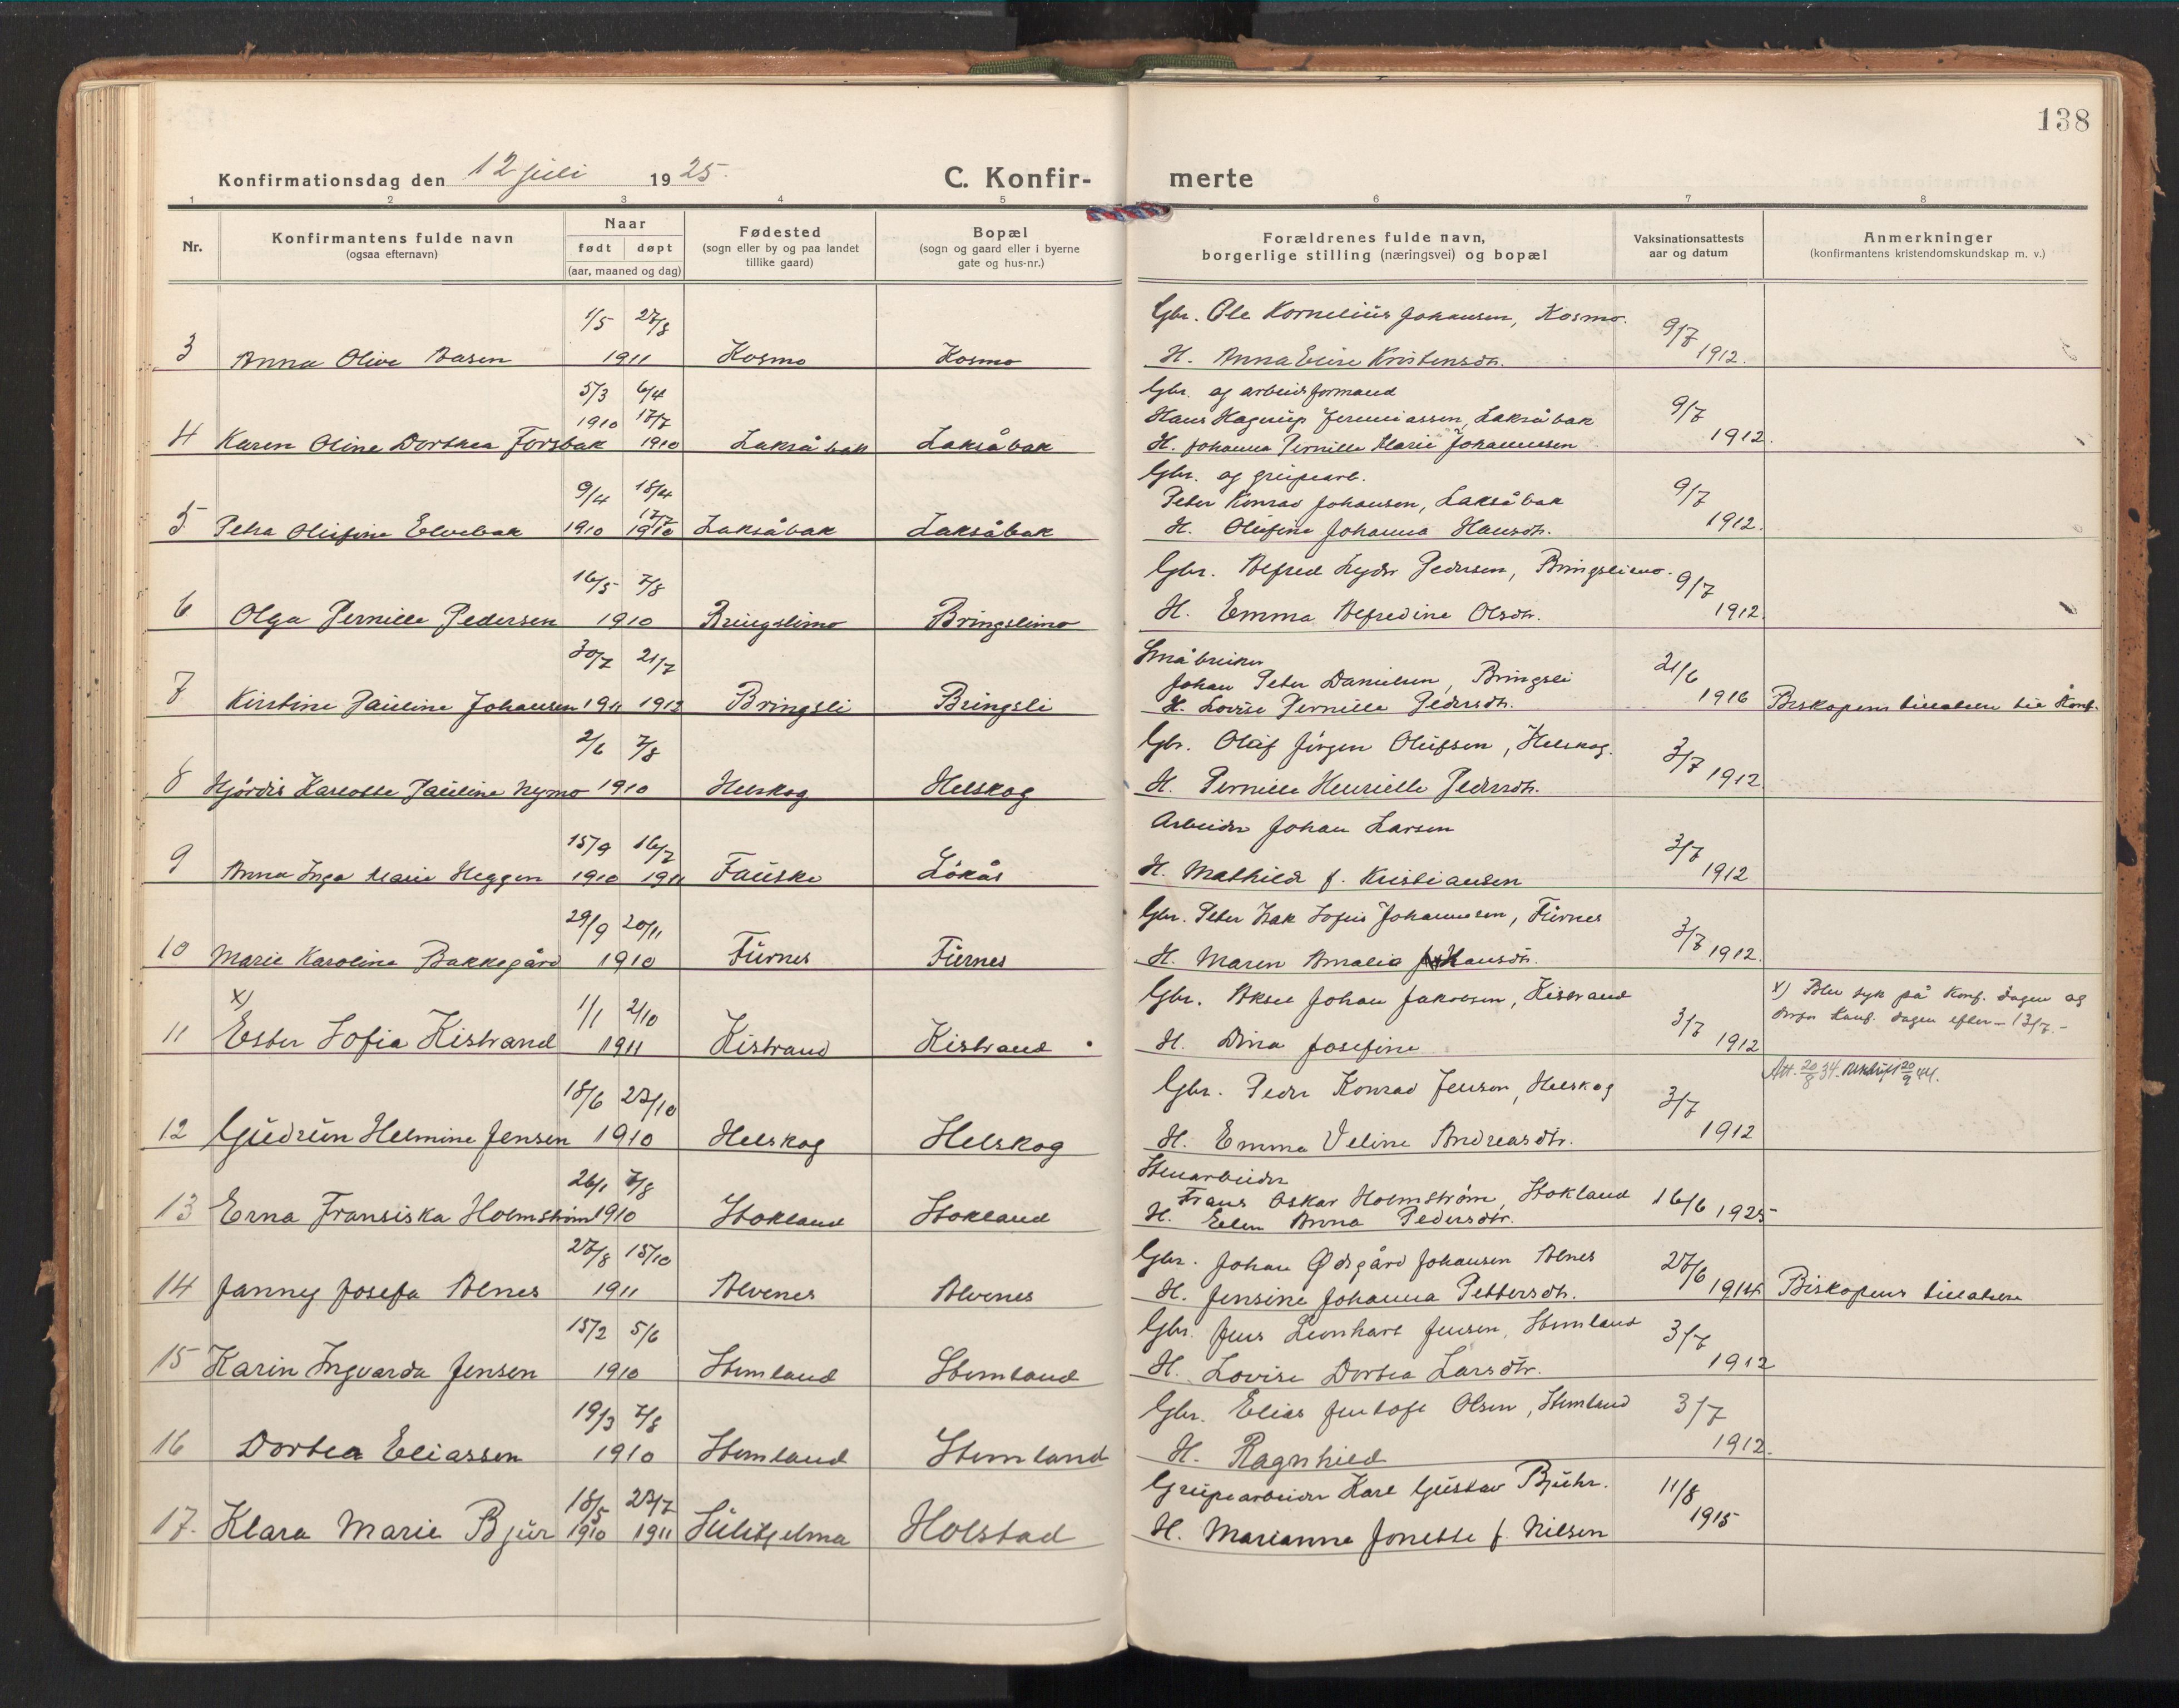 138
Konfirmationsdag den 12 juli 1925.
C. Konfir-
merte
1 2 3 4 5 6 7 8
Nr.
Konfirmantens fulde navn
(ogsaa efternavn)
Naar
født døpt
(aar, maaned og dag)
Fødested
(sogn eller by og paa landet
tillike gaard)
Bopæl
(sogn og gaard eller i byerne
gate og hus-nr.)
Forældrenes fulde navn,
borgerlige stilling (næringsvei) og bopæl
Vaksinationsattests
aar og datum
Anmerkninger
(konfirmantens kristendomskundskap m. v.)
1/5 27/8 Gbr. Ole Kornelius Johansen, Kosmo. 9/7
3 Anna Olive Aasen 1911 Kosmo Kosmo H. Anna Elise Kristensdtr. 1912.
5/3 6/4 Gbr. og arbeidsformand
1910 17/7 Hans Hagerup Jeremiassen, Laksåbak 9/7
4 Karen Oline Dorthea Forsbak 1910 Laksåbak Laksåbak H. Johanna Pernille Marie Johannesen 1912.
9/4 18/4 Gbr. og grupearb.
17/7 Peter Konrad Johansen, Laksåbak 9/7
5 Petra Olufine Elvebak 1910 1910 Laksåbak Laksåbak H. Olufine Johanna Hansdtr. 1912.
16/5 7/8 Gbr. Alfred Lyder Pedersen, Bringslimo. 9/7
6 Olga Pernille Pedersen 1910 Bringslimo Bringslimo H. Emma Alfredine Olsdtr. 1912.
30/7 21/7 Småbruker
Johan Peter Danielsen, Bringsli 21/6
7 Kirstine Pauline Johansen 1911 1912 Bringsli Bringsli H. Lovise Pernille Pedersdtr. 1916 Biskopens tillatelse til Konf.
2/6 7/8 Gbr. Olaf Jørgen Olufsen, Helskog. 3/7
8 Hjørdis Karlotte Pauline Nymo 1910 Helskog Helskog H. Pernille Henriette Pedersdtr. 1912
15/9 16/7 Arbeider Johan Larsen 3/7
9 Anna Inga Marie Heggen 1910 1911 Fauske Løkås H. Mathilde f. Kristiansen 1912
29/9 20/11 Gbr. Peter Isak Sofus Johannesen, Furnes 3/7
10 Marie Karoline Bakkegård 1910 Furnes Furnes H. Maren Amalia Hansdtr. 1912.
x) 1/1 2/10 Gbr. Aksel Johan Jakobsen, Kistrand 3/7 x) Blev syk på Konf. dagen og
11 Ester Sofia Kistrand 1911 Kistrand Kistrand H. Dina Josefine 1912 Konf. dagen efter – 13/7. –
Att. 20/8 34. 20/9 44.
18/6 23/10 Gbr. Peder Konrad Jensen, Helskog 3/7
12 Gudrun Helmine Jensen 1910 Helskog Helskog H. Emma Veline Andreasdtr. 1912
26/1 7/8 Stenarbeider
Frans Oskar Holmstrøm, Stokland 16/6 1925
13 Erna Fransiska Holmstrøm 1910 Stokland Stokland H. Ellen Anna Pedersdtr.
27/8 15/10 Gbr. Johan Ødegård Johansen Alnes 27/6
14 Janny Josefa Alnes 1911 Alvenes Alvenes H. Jensine Johanna Pettersdtr. 1914 Biskopens tillatelse
15/2 5/6 Gbr. Jens Leonhart Jensen, Stemland 3/7
15 Karin Ingvarda Jensen 1910 Stemland Stemland H. Lovise Dortea Larsdtr. 1912
19/3 7/8 Gbr. Elias Jentoft Olsen, Stemland 3/7
16 Dortea Eliassen 1910 Stemland Stemland H. Ragnhild 1912.
18/5 23/7 Grupearbeider Karl Gustav Bjuhr. 11/8
17. Klara Marie Bjur 1910 1911 Sulitjelma Holstad H. Marianne Jonette f. Nilsen 1915